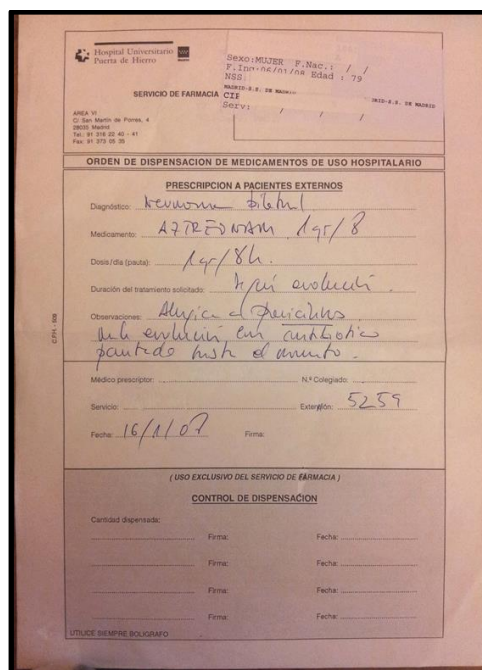 Hospital Universitario
Puerta de Hierro
Sexo:MUJER F.Nac.: / /
F.Ing:06/01/08 Edad : 79
NSS:
MADRID-S.S. DE MADRID
CIP
Serv: / / /
SERVICIO DE FARMACIA
AREA VI
C/ San Martín de Porres, 4
28035 Madrid
Tel.: 91 316 22 40 - 41
Fax: 91 373 05 35
ORDEN DE DISPENSACION DE MEDICAMENTOS DE USO HOSPITALARIO
PRESCRIPCION A PACIENTES EXTERNOS
Diagnóstico: Neumonía bilateral
Medicamento: AZTREONAM 1gr/8
Dosis/día (pauta): 1gr/8h.
Duración del tratamiento solicitado: según evolución.
Observaciones: Alergica a penicilinas
mala evolución con antibiotico
pautado hasta el momento.
Médico prescriptor: N.º Colegiado:
Servicio: Extensión: 5259
Fecha: 16/1/07 Firma:
( USO EXCLUSIVO DEL SERVICIO DE FARMACIA )
CONTROL DE DISPENSACION
Cantidad dispensada:
Firma: Fecha:
Firma: Fecha:
Firma: Fecha:
Firma: Fecha:
UTILICE SIEMPRE BOLIGRAFO